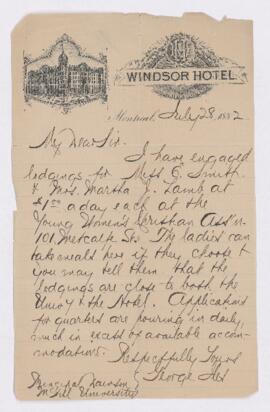 WINDSOR HOTEL
Montreal, July 28, 1882
My Dear Sir.
I have engaged
lodgings for Miss E. Smith
& Mrs. Martha J. Lamb at
$1 a day each at the
Young Women's Christian Ass'n.
101 Metcalfe St. The ladies can
take meals here if they choose &
you may tell them that the
lodgings are close to both the
Univ'y & the Hotel. Applications
for quarters are pouring in daily,
much in excess of available accom-
modations.
Respectfully Yours
George
Principal Dawson
McGill University